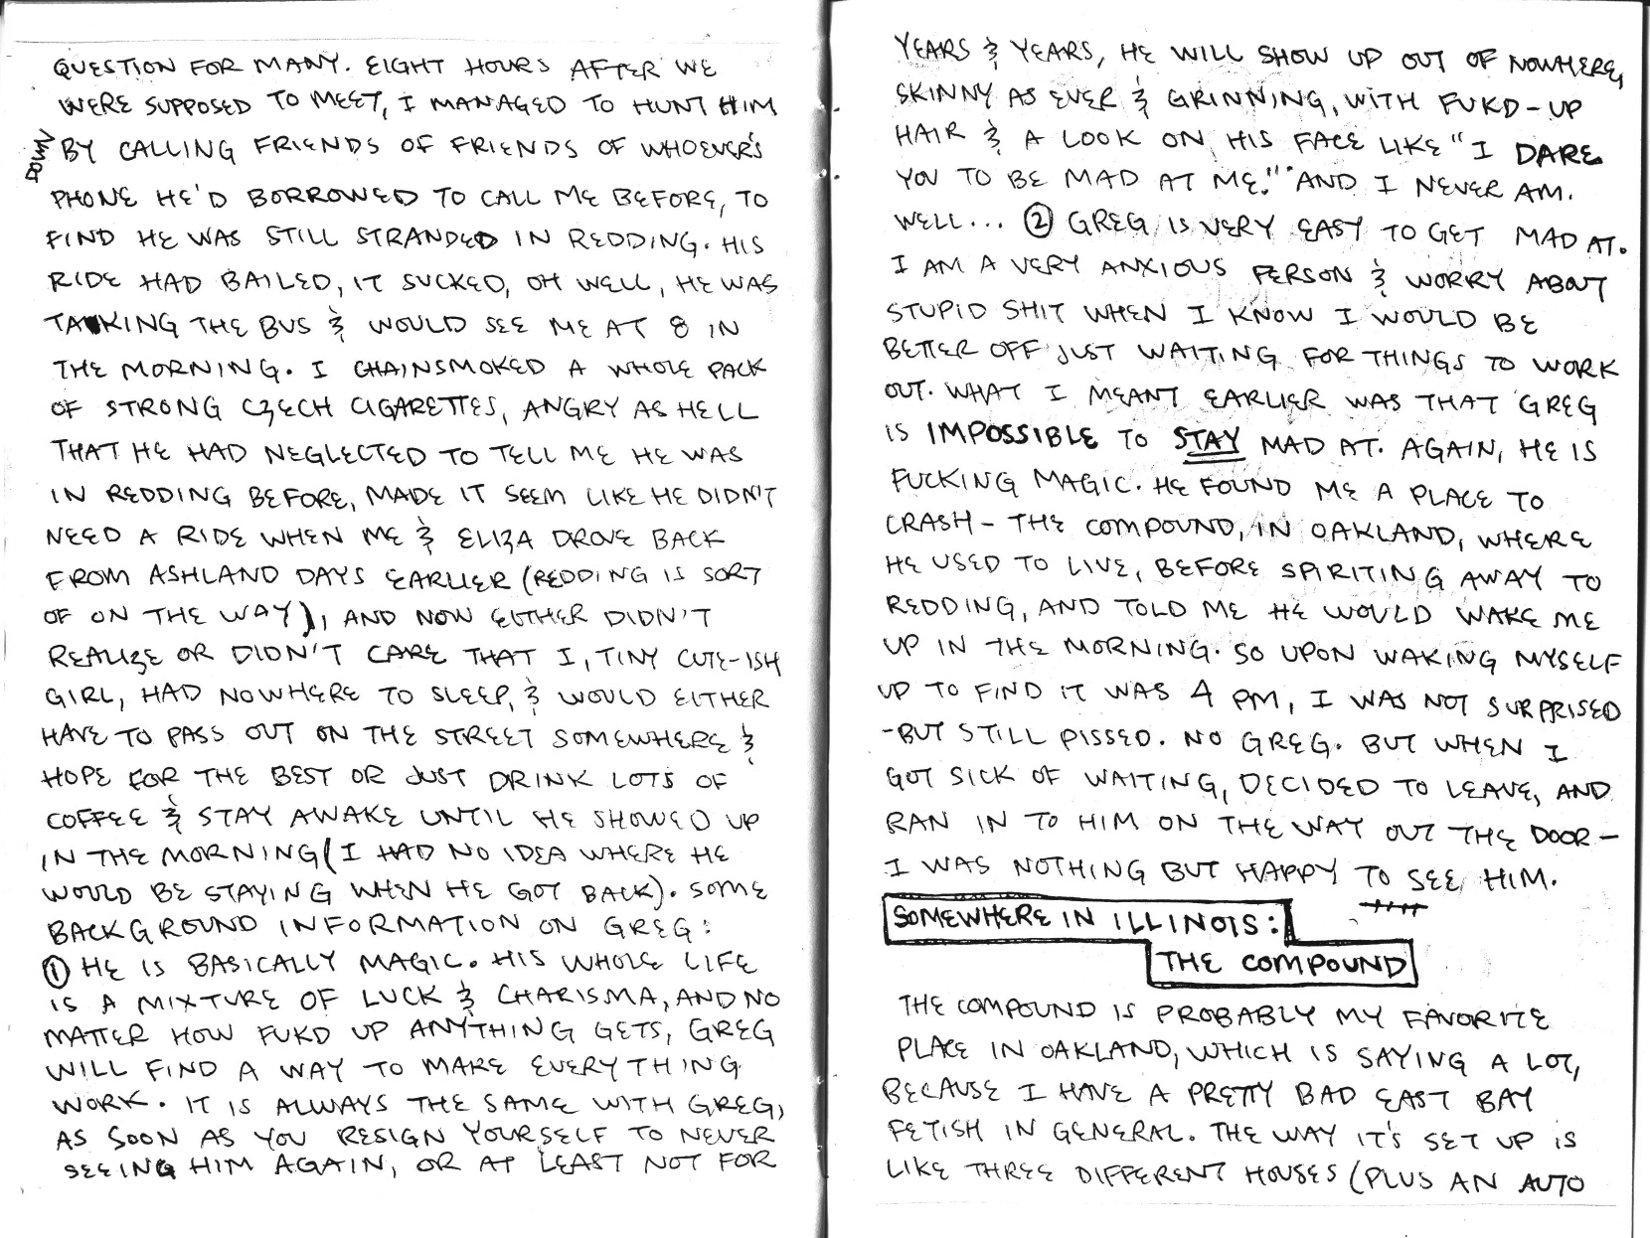 QUESTION FOR MANY. EIGHT HOURS AFTER WE
WERE SUPPOSED TO MEET, I MANAGED TO HUNT HIM
DOWN BY CALLING FRIENDS OF FRIENDS OF WHOEVER'S
PHONE HE'D BORROWED TO CALL ME BEFORE, TO
FIND HE WAS STILL STRANDED IN REDDING. HIS
RIDE HAD BAILED, IT SUCKED, OH WELL, HE WAS
TAKING THE BUS & WOULD SEE ME AT 8 IN
THE MORNING. I CHAINSMOKED A WHOLE PACK
OF STRONG CZECH CIGARETTES, ANGRY AS HELL
THAT HE HAD NEGLECTED TO TELL ME HE WAS
IN REDDING BEFORE, MADE IT SEEM LIKE HE DIDN'T
NEED A RIDE WHEN ME & ELIZA DROVE BACK
FROM ASHLAND DAYS EARLIER (REDDING IS SORT
OF ON THE WAY), AND NOW EITHER DIDN'T
REALIZE OR DIDN'T CARE THAT I, TINY CUTE-ISH
GIRL, HAD NOWHERE TO SLEEP, & WOULD EITHER
HAVE TO PASS OUT ON THE STREET SOMEWHERE &
HOPE FOR THE BEST OR JUST DRINK LOTS OF
COFFEE & STAY AWAKE UNTIL HE SHOWED UP
IN THE MORNING (I HAD NO IDEA WHERE HE
WOULD BE STAYING WHEN HE GOT BACK). SOME
BACKGROUND INFORMATION ON GREG:
① HE IS BASICALLY MAGIC. HIS WHOLE LIFE
IS A MIXTURE OF LUCK & CHARISMA, AND NO
MATTER HOW FUKD UP ANYTHING GETS, GREG
WILL FIND A WAY TO MAKE EVERYTHING
WORK. IT IS ALWAYS THE SAME WITH GREG,
AS SOON AS YOU RESIGN YOURSELF TO NEVER
SEEING HIM AGAIN, OR AT LEAST NOT FOR
YEARS & YEARS, HE WILL SHOW UP OUT OF NOWHERE,
SKINNY AS EVER & GRINNING, WITH FUKD-UP
HAIR & A LOOK ON HIS FACE LIKE "I DARE
YOU TO BE MAD AT ME." AND I NEVER AM.
WELL... ② GREG IS VERY EASY TO GET MAD AT.
I AM A VERY ANXIOUS PERSON & WORRY ABOUT
STUPID SHIT WHEN I KNOW I WOULD BE
BETTER OFF JUST WAITING FOR THINGS TO WORK
OUT. WHAT I MEANT EARLIER WAS THAT GREG
IS IMPOSSIBLE TO STAY MAD AT. AGAIN, HE IS
FUCKING MAGIC. HE FOUND ME A PLACE TO
CRASH - THE COMPOUND, IN OAKLAND, WHERE
HE USED TO LIVE, BEFORE SPIRITING AWAY TO
REDDING, AND TOLD ME HE WOULD WAKE ME
UP IN THE MORNING. SO UPON WAKING MYSELF
UP TO FIND IT WAS 4 PM, I WAS NOT SURPRISED
-BUT STILL PISSED. NO GREG. BUT WHEN I
GOT SICK OF WAITING, DECIDED TO LEAVE, AND
RAN IN TO HIM ON THE WAY OUT THE DOOR -
I WAS NOTHING BUT HAPPY TO SEE HIM.
SOMEWHERE IN ILLINOIS:
THE COMPOUND
THE COMPOUND IS PROBABLY MY FAVORITE
PLACE IN OAKLAND, WHICH IS SAYING A LOT,
BECAUSE I HAVE A PRETTY BAD EAST BAY
FETISH IN GENERAL. THE WAY IT'S SET UP IS
LIKE THREE DIFFERENT HOUSES (PLUS AN AUTO